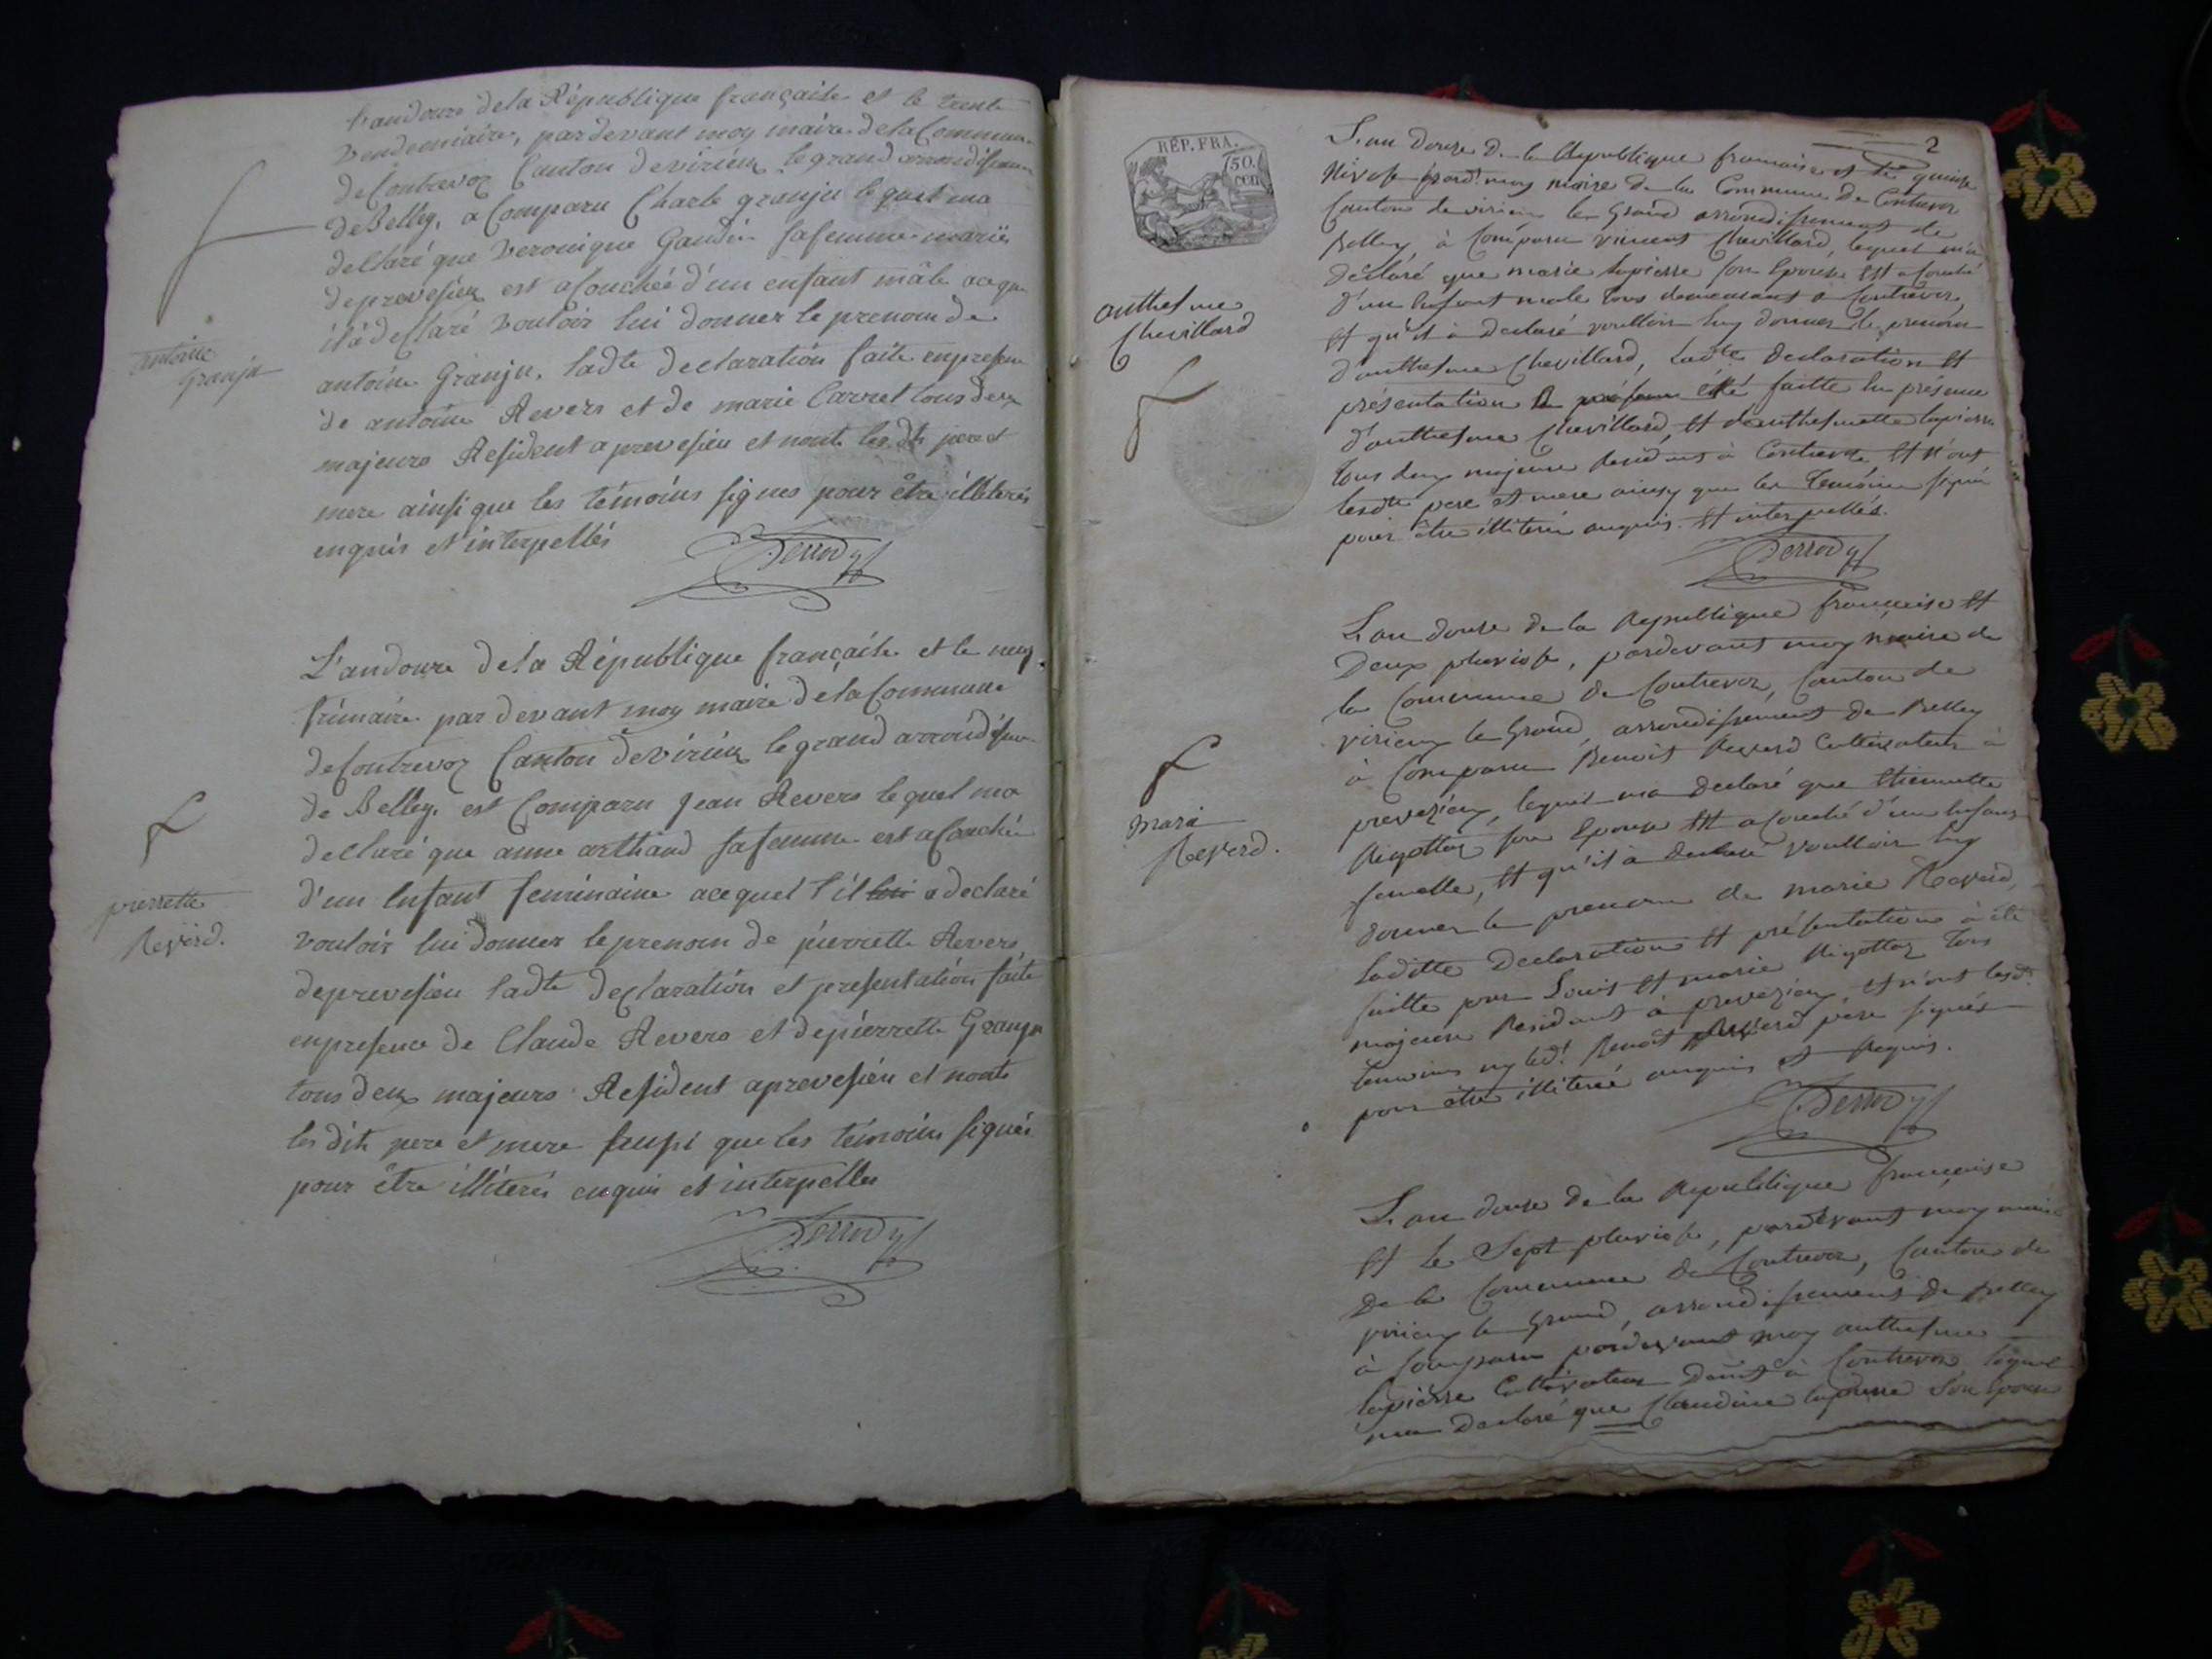 L'an douze de la République françaite et le trente
Vendemiaire, par devant moy maire de la Commune
de Contrevoz Canton de virieux le grand arrondissem
de Belley, a Comparu Charle granju lequel ma
declaré que veronique Gaudin sa femme mariés
de prevesieu est acouchée d'un enfant mâle aceque
il a declaré Vouloir lui donner le prenom de
antoine Granju. ladte declaration faite en presence
de antoine Revers et de marie Carret tous deux
majeurs Resident a prevesieu et nont les dts pere et
mere ainsi que les témoins signes pour être illiterés
enquis et interpellés
antoine
Granju
L'an douze de la République françaite et le neuf
frimaire par devant moy maire de la Commune
de Contrevoz Canton de Virieux le grand arrondissem
de Belley, est Comparu Jean Revers lequel ma
declaré que anne arthaud sa femme est acouchée
d'un Enfant feminaine acequel l'il lui a declaré
vouloir lui donner le prenom de pierrette Revers
de prevesieu ladte declaration et presentation faite
en presence de Claude Revers et de pierrette Granju
tous deux majeurs Resident a prevesieu et nonts
les dits pere et mere aussi que les témoins signés
pour être illiterés enquis et interpellés
pierrette
Reverd.
2
RÉP. FRA.
50.
CEN
L'an douze de la Republique francaise et le quinze
Nivose pard.t moy maire de la Commune de Contrevoz
Canton de virieux le Grand arrondissement de
Belley, à Comparu vincent Chevillard, lequel m'a
déclaré que marie lapierre son Epouse Est acouché
d'un Enfant male tous demeurant a Contrevoz,
Et qu'il à Declaré voulloir luy donner le prenom
d'anthelme Chevillard, ladte Declaration Et
présentation été faitte En présence
d'anthelme Chevillard, Et d'anthelmette lapierre
tous deux majeurs Residents à Contrevoz Et N'ont
lesdts pere et mere ainsy que les Temoins signé
pour être illiteré enquis Et interpellés.
anthelme
Chevillard
L'an douze de la Republique francaise Et
Deux pluviose, pardevant moy maire de
la Commune de Contrevoz, Canton de
virieux le Grand, arrondissement de Belley
à Comparu Benoit Reverd Cultivateur à
prevezieu, lequel ma declaré que Etiennette
Rigottaz son Epouse Est acouché d'un Enfant
femelle, Et qu'il à declaré voulloir luy
donner le prenom de marie Reverd,
Laditte Declaration Et présentation à été
faitte par Louis Et marie Rigottaz Tous
majeurs Residents à prevezieu, et n'ont lesdt
temoins ny led.t Benoit Reverd pere signés
pour être illiteré enquis et Requis.
mari
Reverd.
L'an douze de la Republique francaise
Et Le Sept pluviose, pardevant moy maire
De la Commune de Contrevoz, Canton de
virieux le Grand, arrondissement de Belley
à Comparu pardevant moy anthelme
lapierre Cultivateur Demt à Contrevoz lequel
ma declaré que Claudine lapierre son Epouse